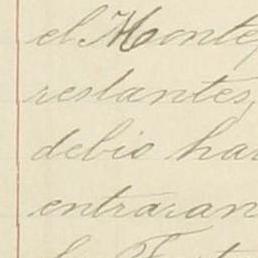 el Monte
restantes,
debio ha
entraran